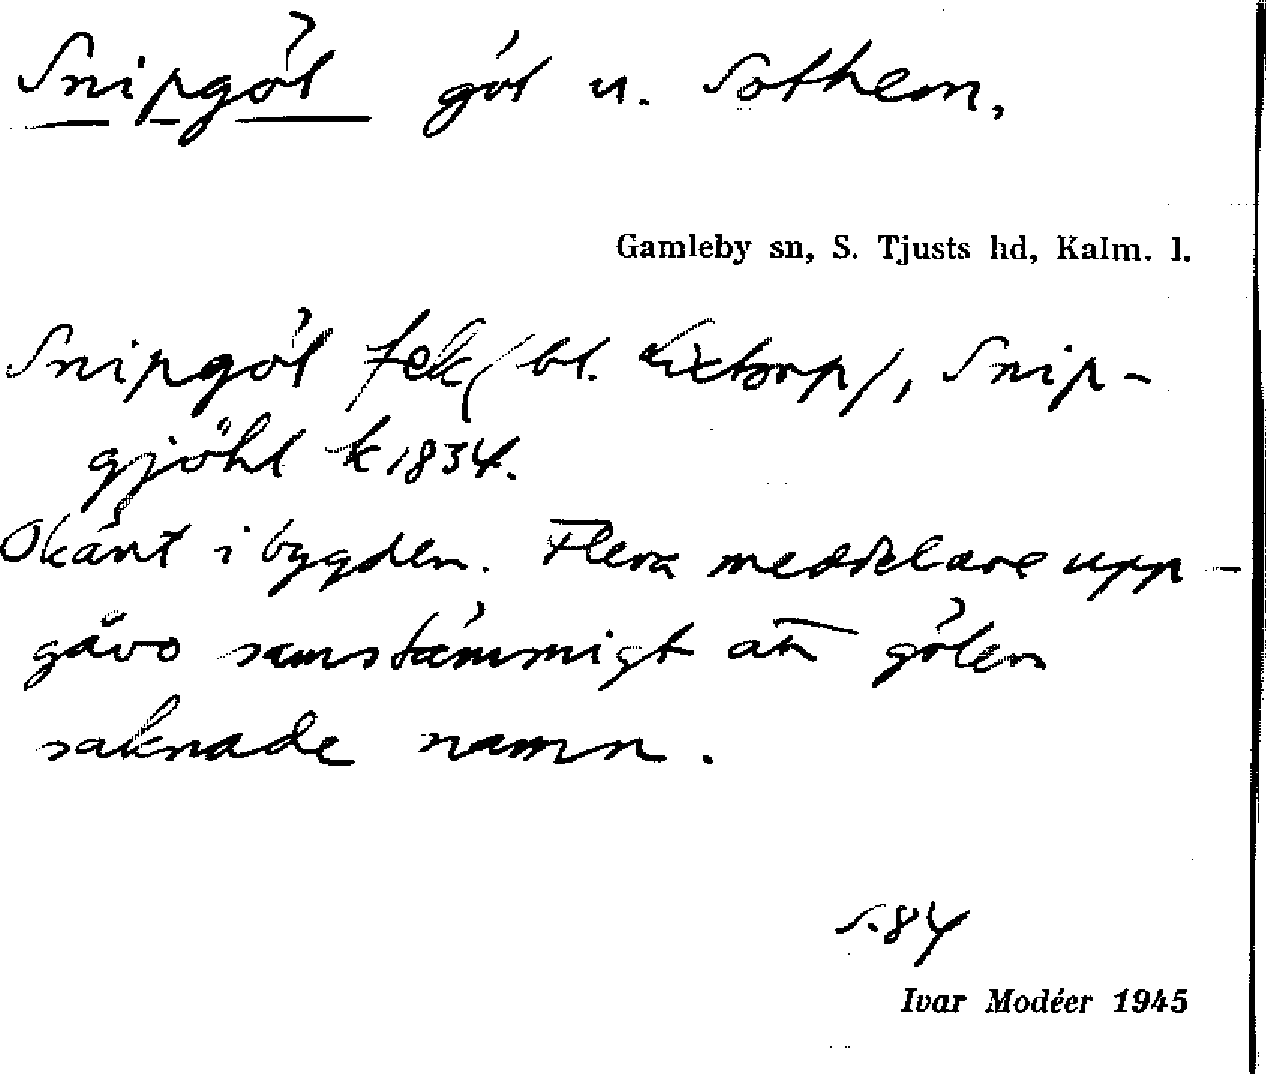 Snipgöl göl u. Sothem,
Gamleby sn, S. Tjusts hd, Kalm. l.
Snipgöl fek (bl. Lixtorp), Snip-
gjöhl k 1834.
Okänt i bygden. Flera meddelare upp-
gåvo samstämmigt att gölen
saknade namn.
s. 84
Ivar Modéer 1945